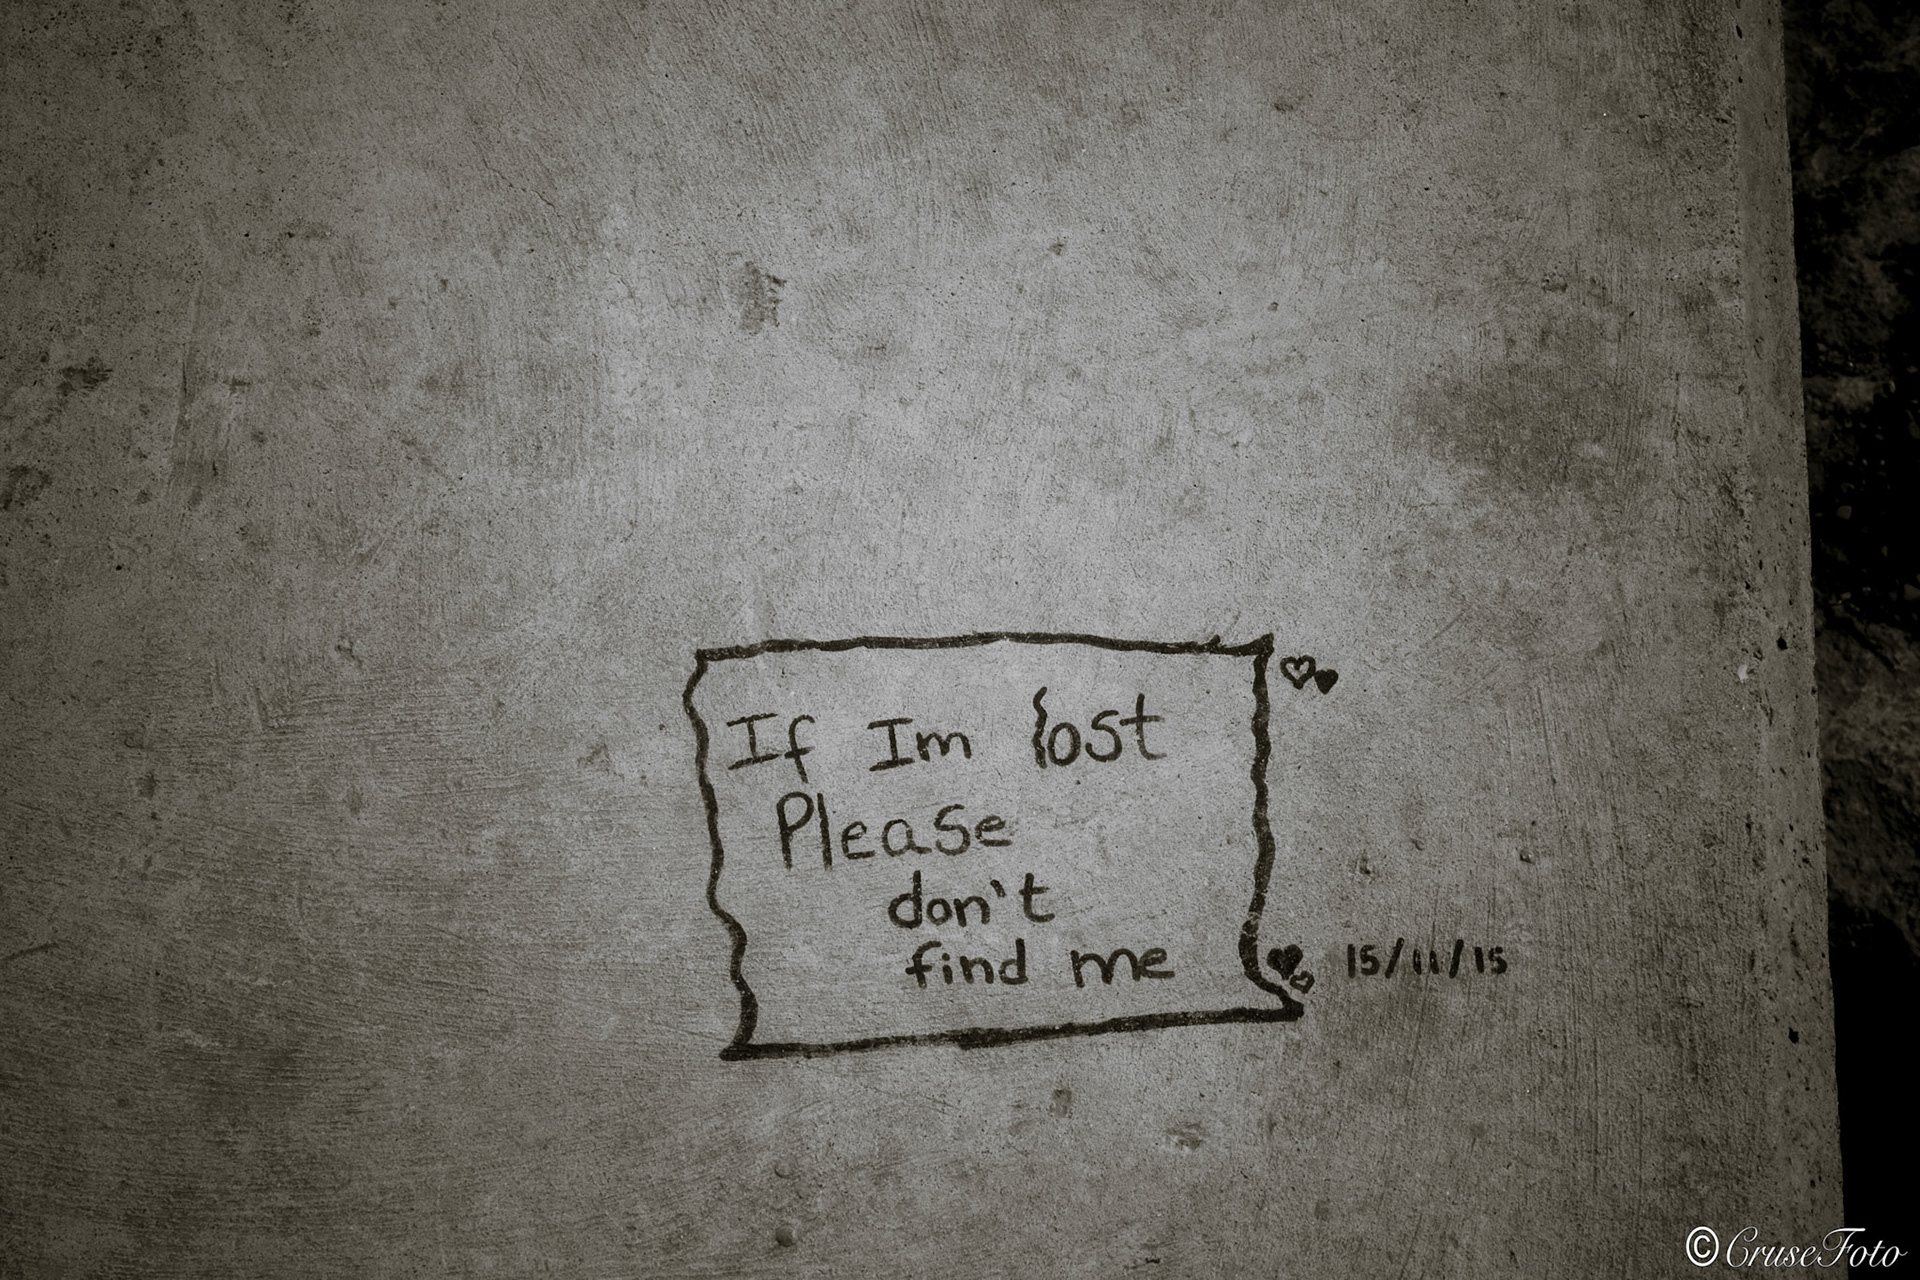 If Im lost
Please
don't
find me
15/11/15
©CruseFoto